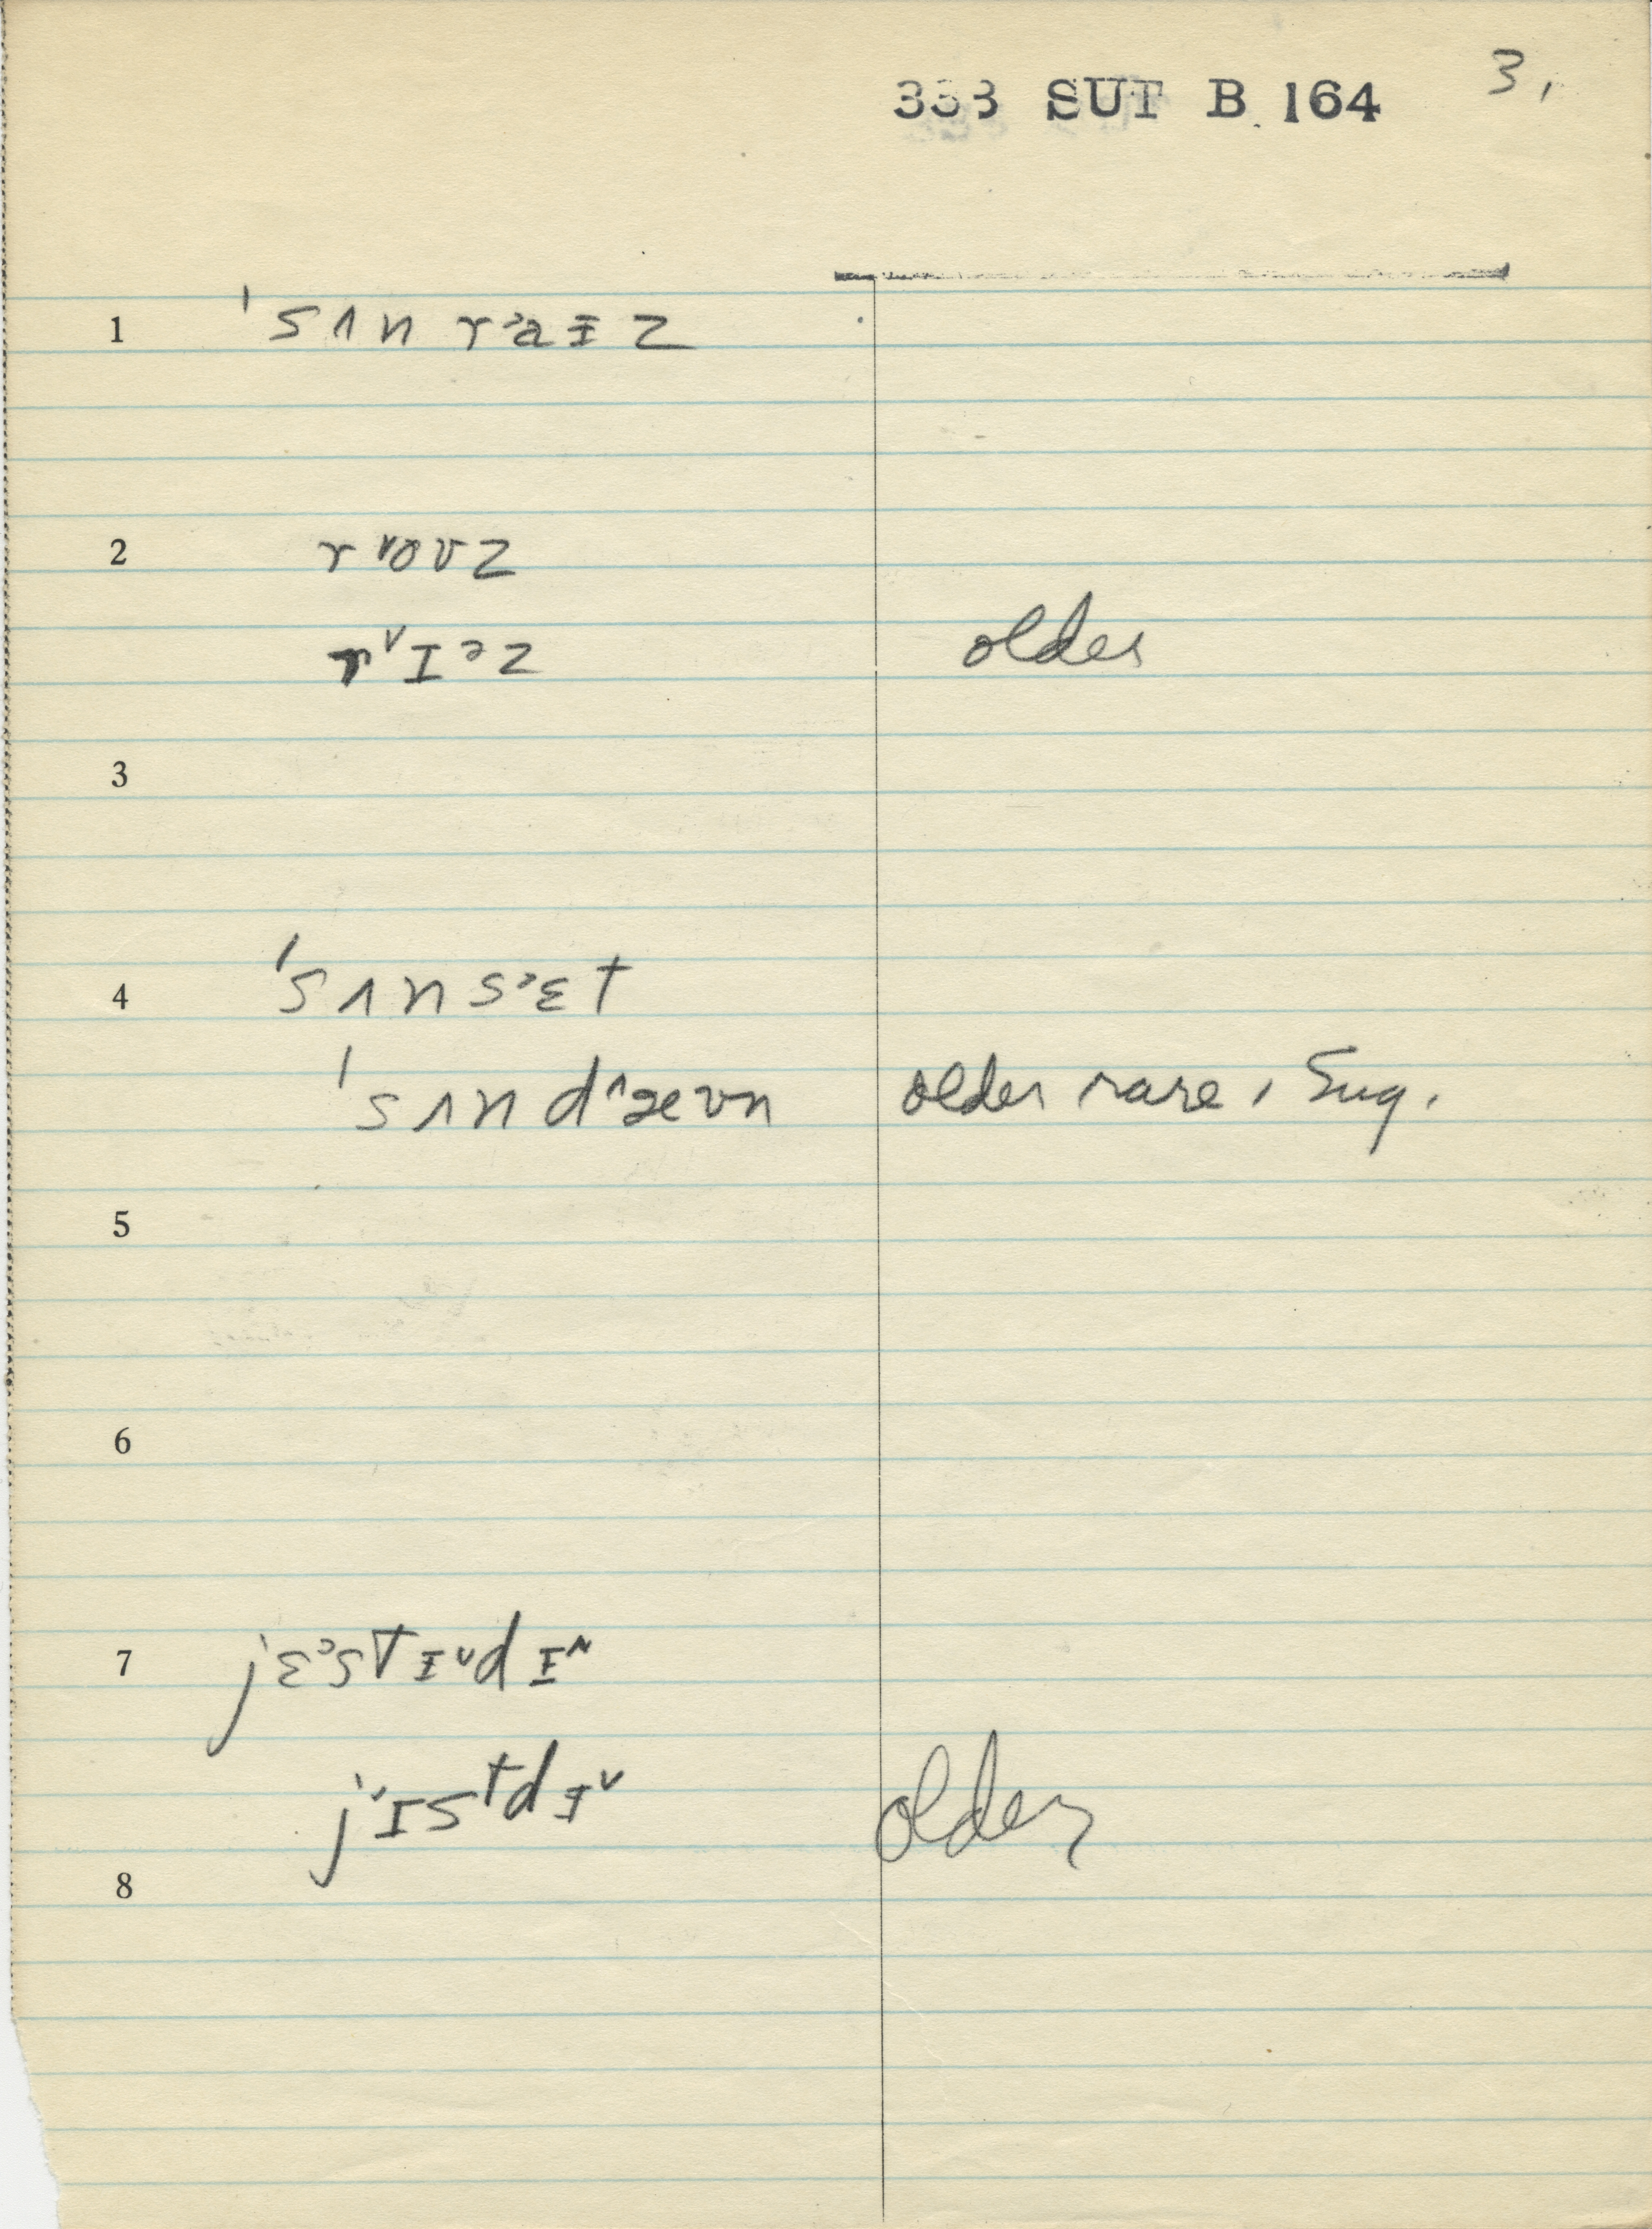 333 SUT B 164 3,
1 ˈsʌn r˒aɪz
2 r ˅oʊz
r˅ɪəz older
3
4 ˈsʌns˒ɛt
ˈsʌnd˄æʊn older rare, Sug.
5
6
7 jɛ˒stɪ˅dɪ˄
j˅ɪstdɪ˅ older
8